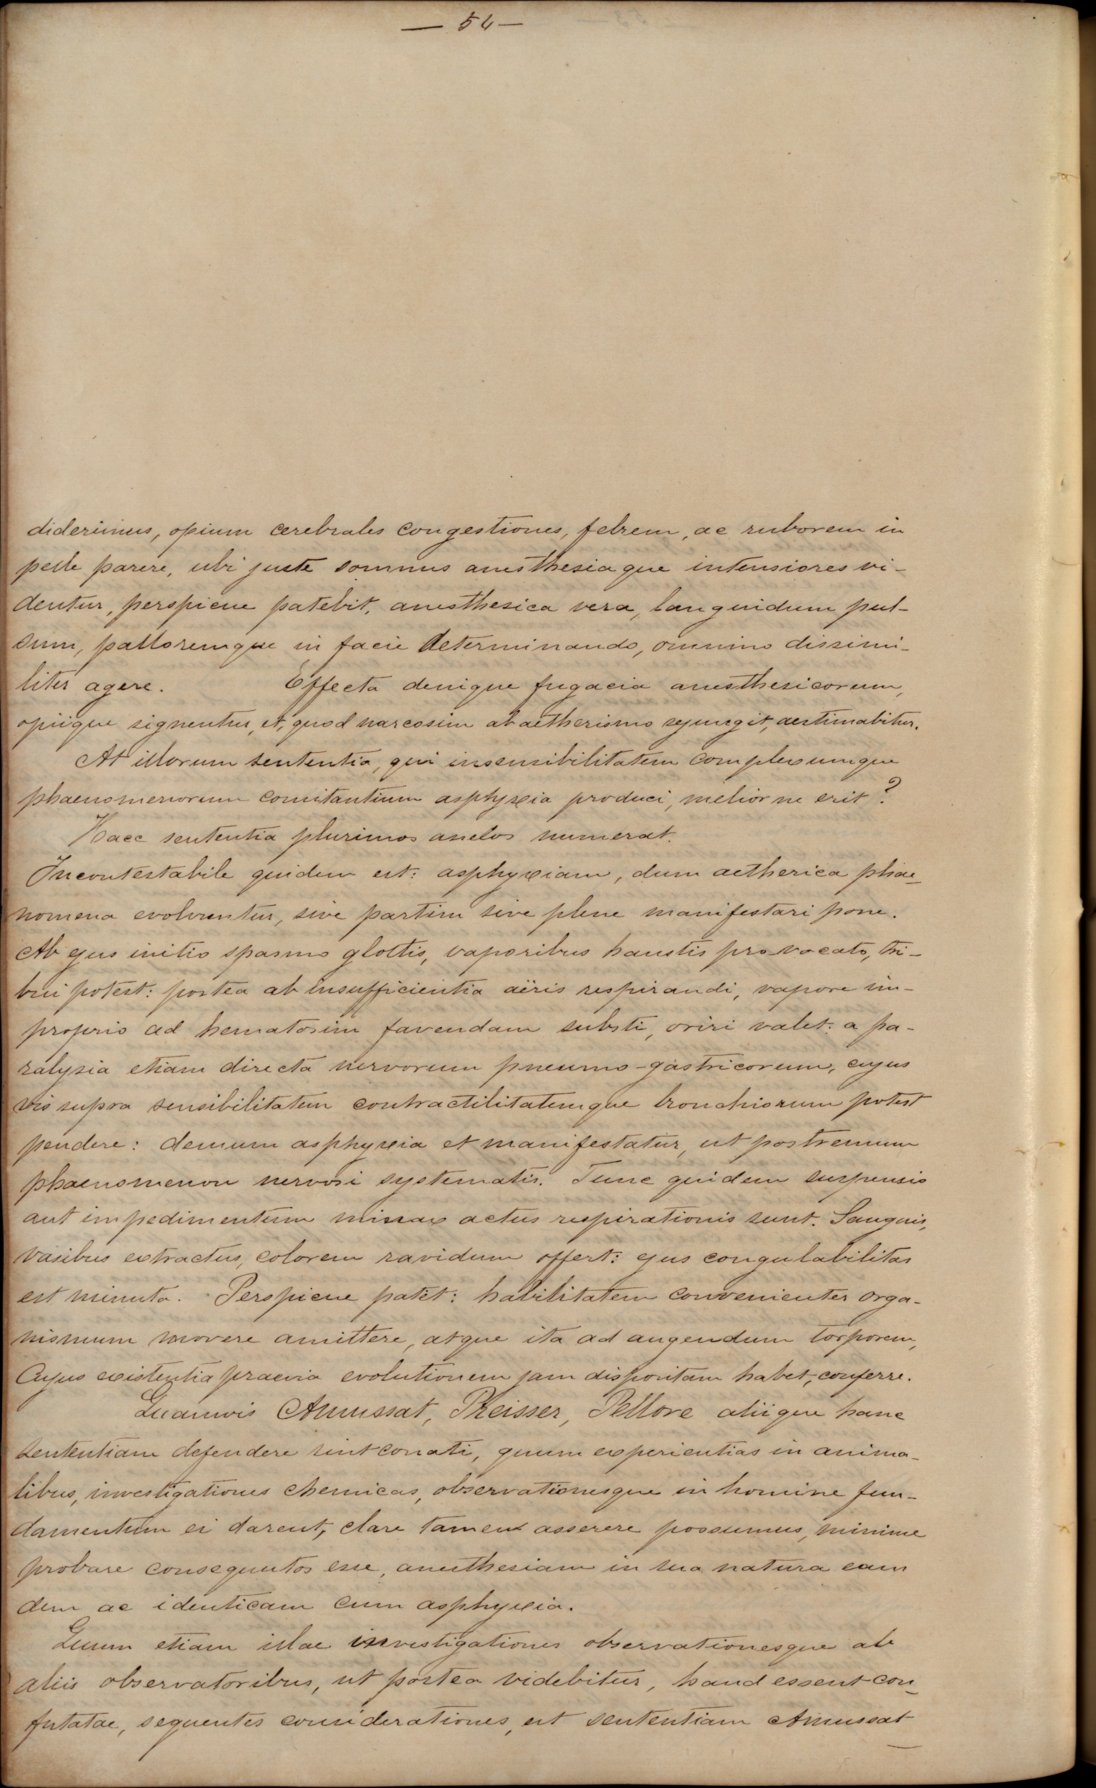 — 54 —
diderimus, opium cerebrales congestiones, febrem, ac ruborem in
pelle parere, ubi juste somnus anesthesiaque intensiores vi-
dentur, perspicue patebit, anesthesica vera, languidum pul-
sum, palloremque in facie determinando, omnino dissimi-
liter agere. Effecta denique fugacia anesthesicorum,
opiique signentur, et, quod narcosim ab aetherismo sejungit, aestimabitur.
At illorum sententia, qui insensibilitatem complexumque
phaenomenorum comitantium asphyxia produci, melior ne erit?
Haec sententia plurimos asseclas numerat.
Incontestabile quidem est: asphyxiam, dum aetherica phae-
nomena evolvuntur, sive partim sive plene manifestari pone.
Ab ejus initio spasmo glottis, vaporibus haustis provocato, tri-
bui potest: postea ab insufficientia aëris respirandi, vapore im-
proprio ad hematosim favendam substi, oriri valet: a pa-
ralysia etiam directa nervorum pneumo-gastricorum, cujus
vis supra sensibilitatem contractilitatemque bronchiorum potest
pendere: demum asphyxia et manifestatur, ut postremum
phaenomenon nervosi systematis. Tunc quidem suspensio
aut impedimentum actus respirationis sunt. Sanguis,
vasibus extractus, colorem ravidum offert: ejus coagulabilitas
est minuta. Perspicue patet: habilitatem convenienter orga-
nismum movere amittere, atque ita ad augendum torporem,
Cujus existentia praevia evolutionem jam dispositam habet, conferre.
Quamvis Amussat, Preisser, Pellore aliique hanc
sententiam defendere sint conati, quum experientias in anima-
libus, investigationes chemicas, observationesque in homine fun-
damentum ei darent, clare tamen asserere possumus, minime
probare consequutos esse, anesthesiam in sua natura eam
dem ac identicam cum asphyxia.
Quum etiam istae investigationes observationesque ab
aliis observatoribus, ut postea videbitur, haud essent con-
futatae, sequentes considerationes, ut sententiam Amussat